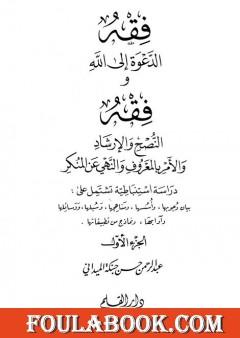 فِقْهُ
الدَّعْوَةِ إِلَى اللهِ
وَ
فِقْهُ
النُّصْحِ وَالإِرْشَادِ
وَالأَمْرِ بِالمَعْرُوفِ وَالنَّهْيِ عَنِ المُنْكَرِ
دِرَاسَة اسْتِنبَاطِيَّة تَشْتَمِل عَلَى:
بيان وجوبها، وأسسها، ومناهجها، وسُبُلها، ووسائلها
وآدابها، ونماذج من تطبيقاتها
الجُزءُ الأوَّل
عبد الرحمن حسن حبنكة الميداني
دار القلم
FOULABOOK.COM